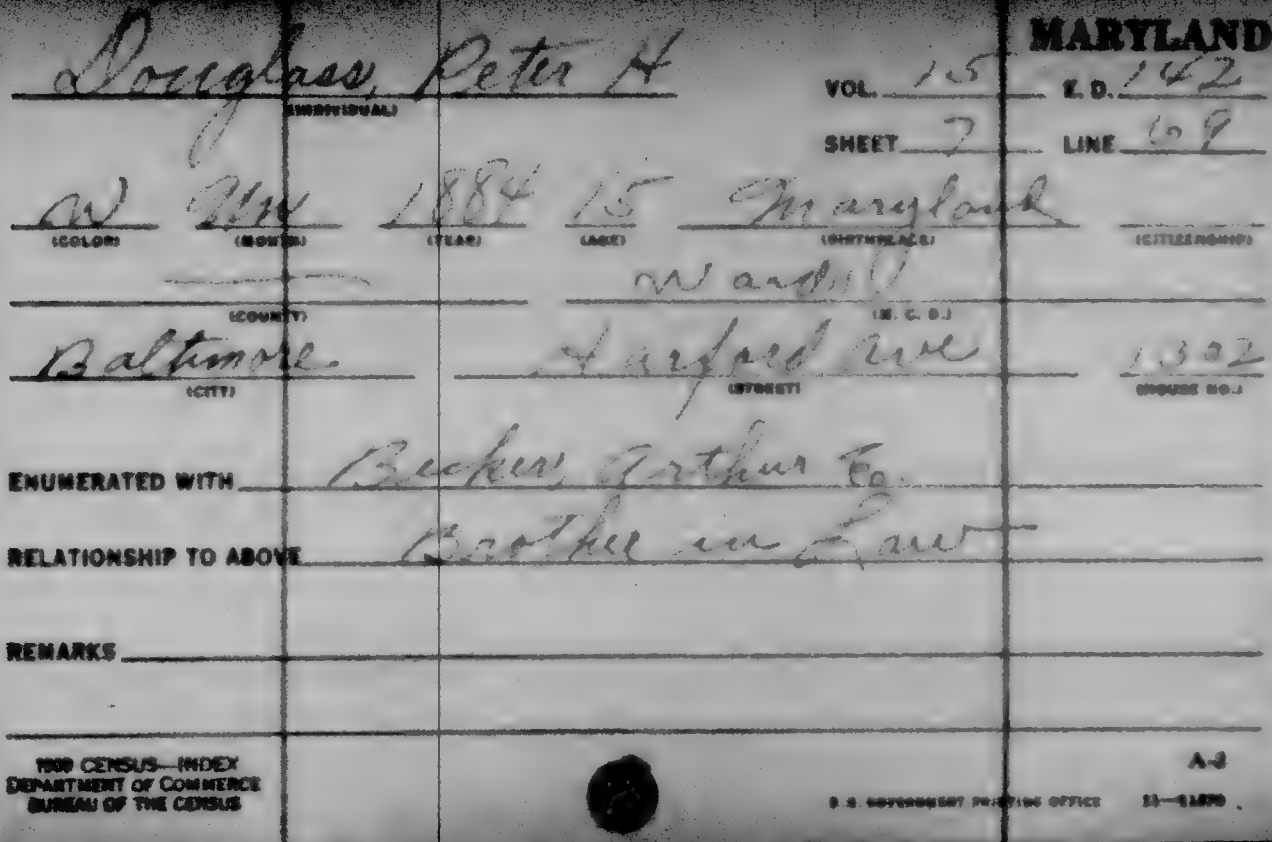 MARYLAND
Douglass, Peter H
(INDIVIDUAL)
VOL. 15 E. D. 142
SHEET 7 LINE 69
W Un 1884 15 Maryland
(COLOR) (MONTH) (YEAR) (AGE) (BIRTHPLACE) (CITIZENSHIP)
Ward
(COUNTY) (M. C. D.)
Baltimore Harford Ave 1302
(CITY) (STREET) (HOUSE NO.)
ENUMERATED WITH Becker, Arthur E.
RELATIONSHIP TO ABOVE Brother in Law
REMARKS
1900 CENSUS—INDEX
DEPARTMENT OF COMMERCE
BUREAU OF THE CENSUS
A-2
U.S. GOVERNMENT PRINTING OFFICE